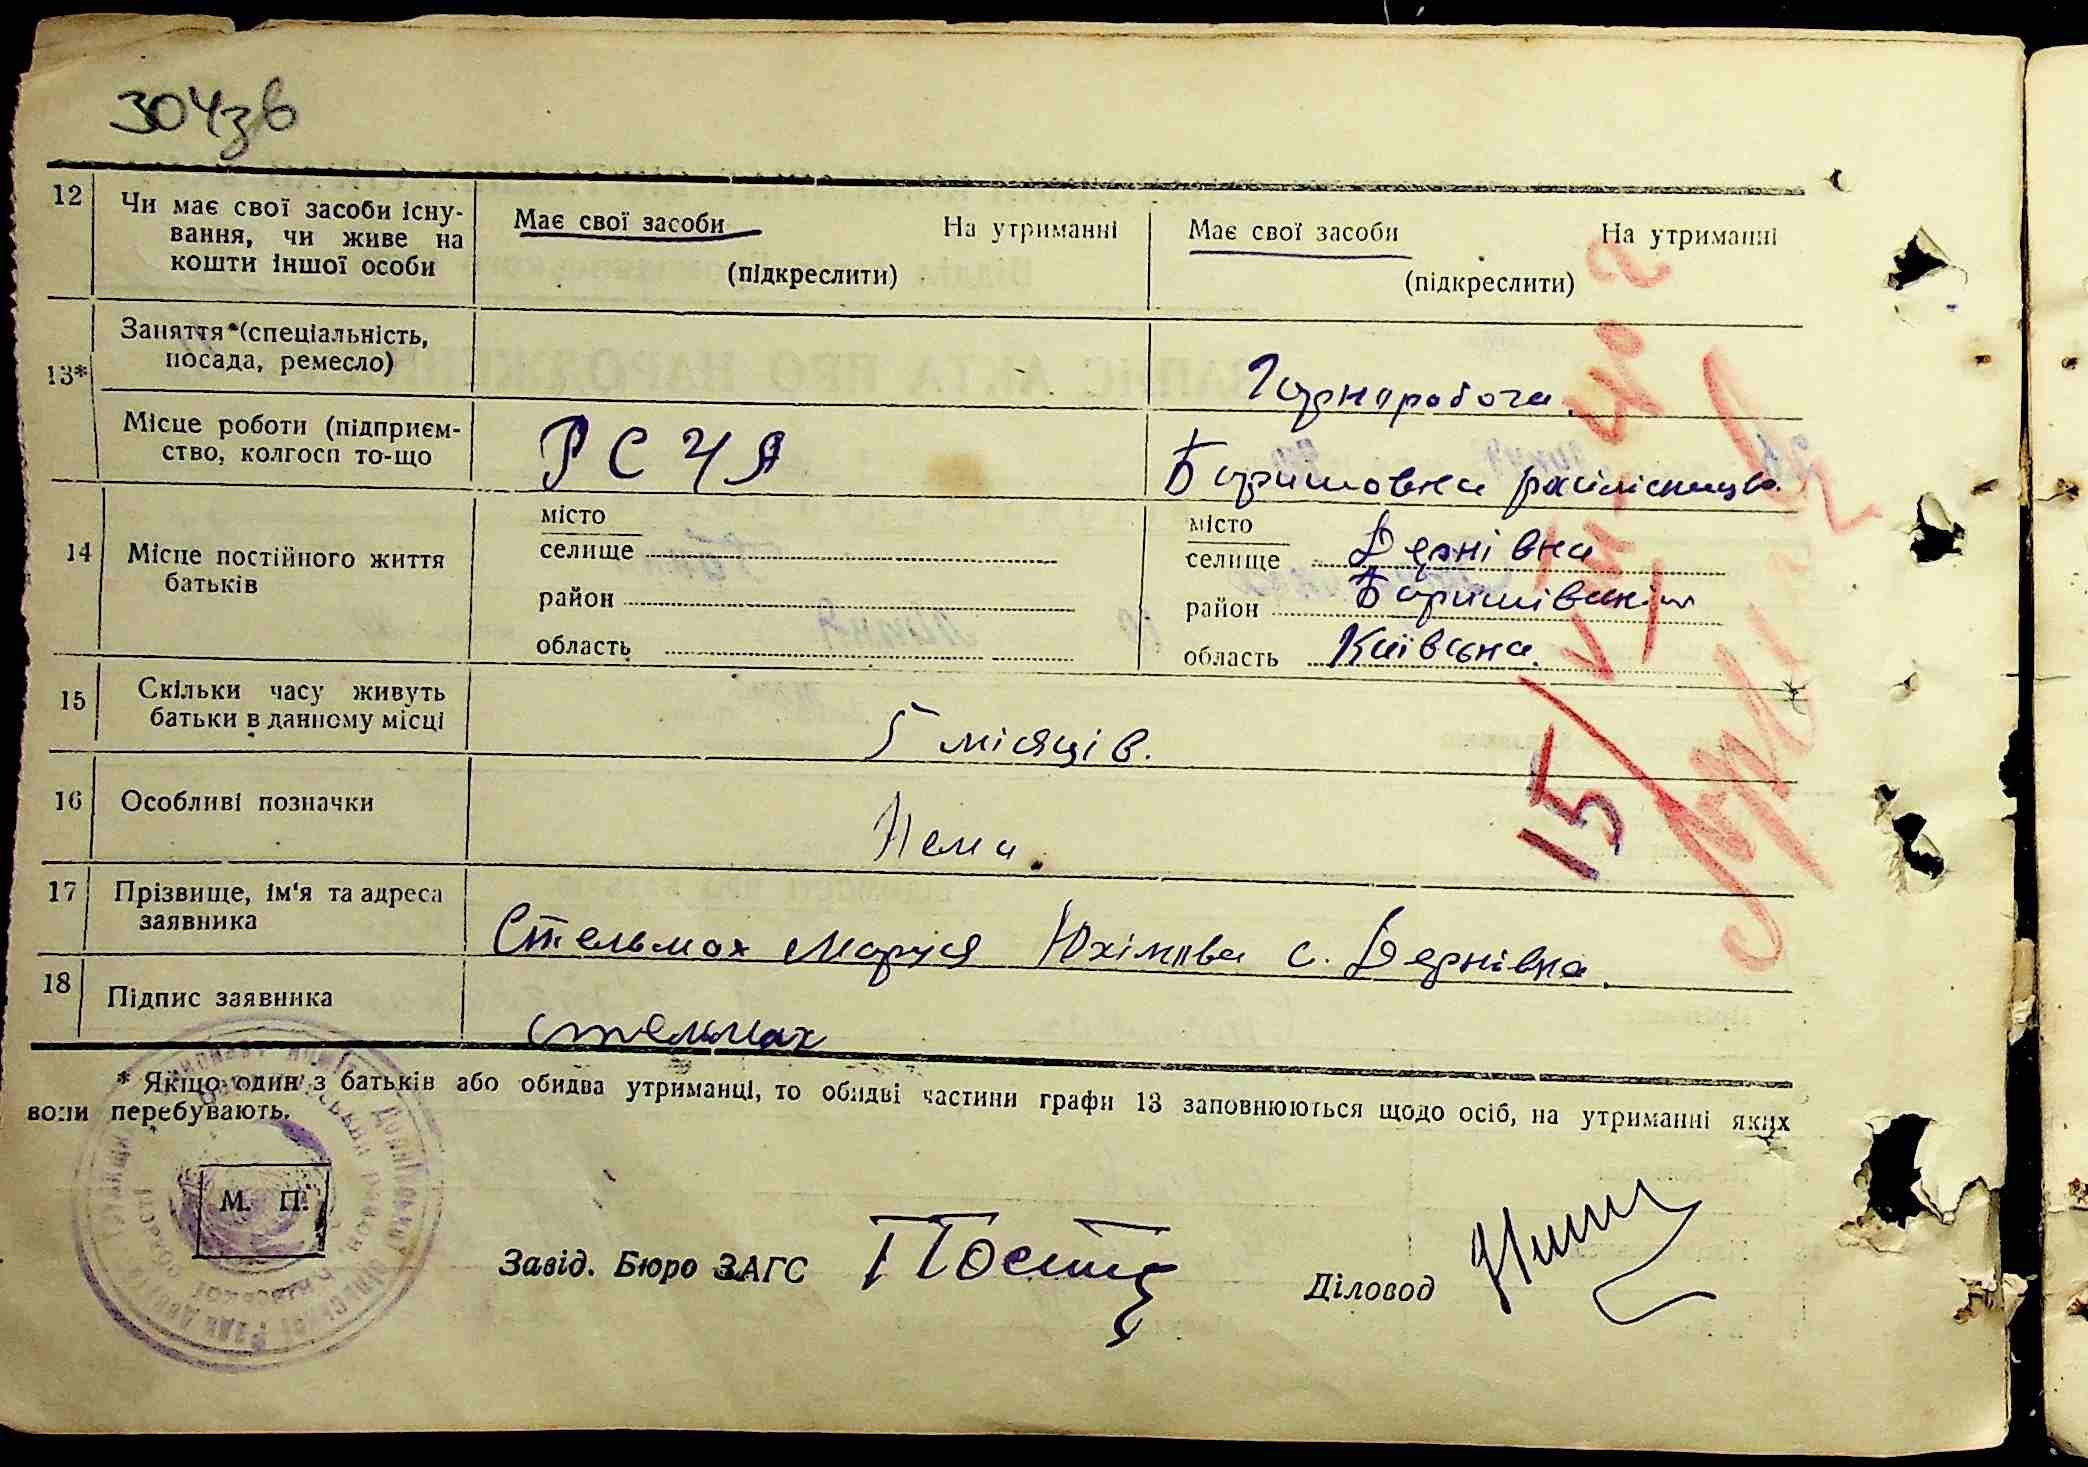 304зв
12
Чи має свої засоби існу-
вання, чи живе на
кошти іншої особи
Має свої засоби На утриманні
(підкреслити)
Має свої засоби На утриманні
(підкреслити)
13*
Заняття*(спеціальність,
посада, ремесло)
Чорнороботча
Місце роботи (підприєм-
ство, колгосп то-що
РСЧА
14
Місце постійного життя
батьків
місто
селище
район
область
місто
селище Дернівка
район
область Київська
15
Скільки часу живуть
батьки в данному місці
5 місяців.
16
Особливі позначки
Нема.
17
Прізвище, ім'я та адреса
заявника
Стельмах Маруся Юхімовна с. Дернівка
18
Підпис заявника
стельмах
* Якщо один з батьків або обидва утриманці, то обидві частини графи 13 заповнюються щодо осіб, на утриманні яких
вони перебувають.
М. П.
Завід. Бюро ЗАГС
Діловод